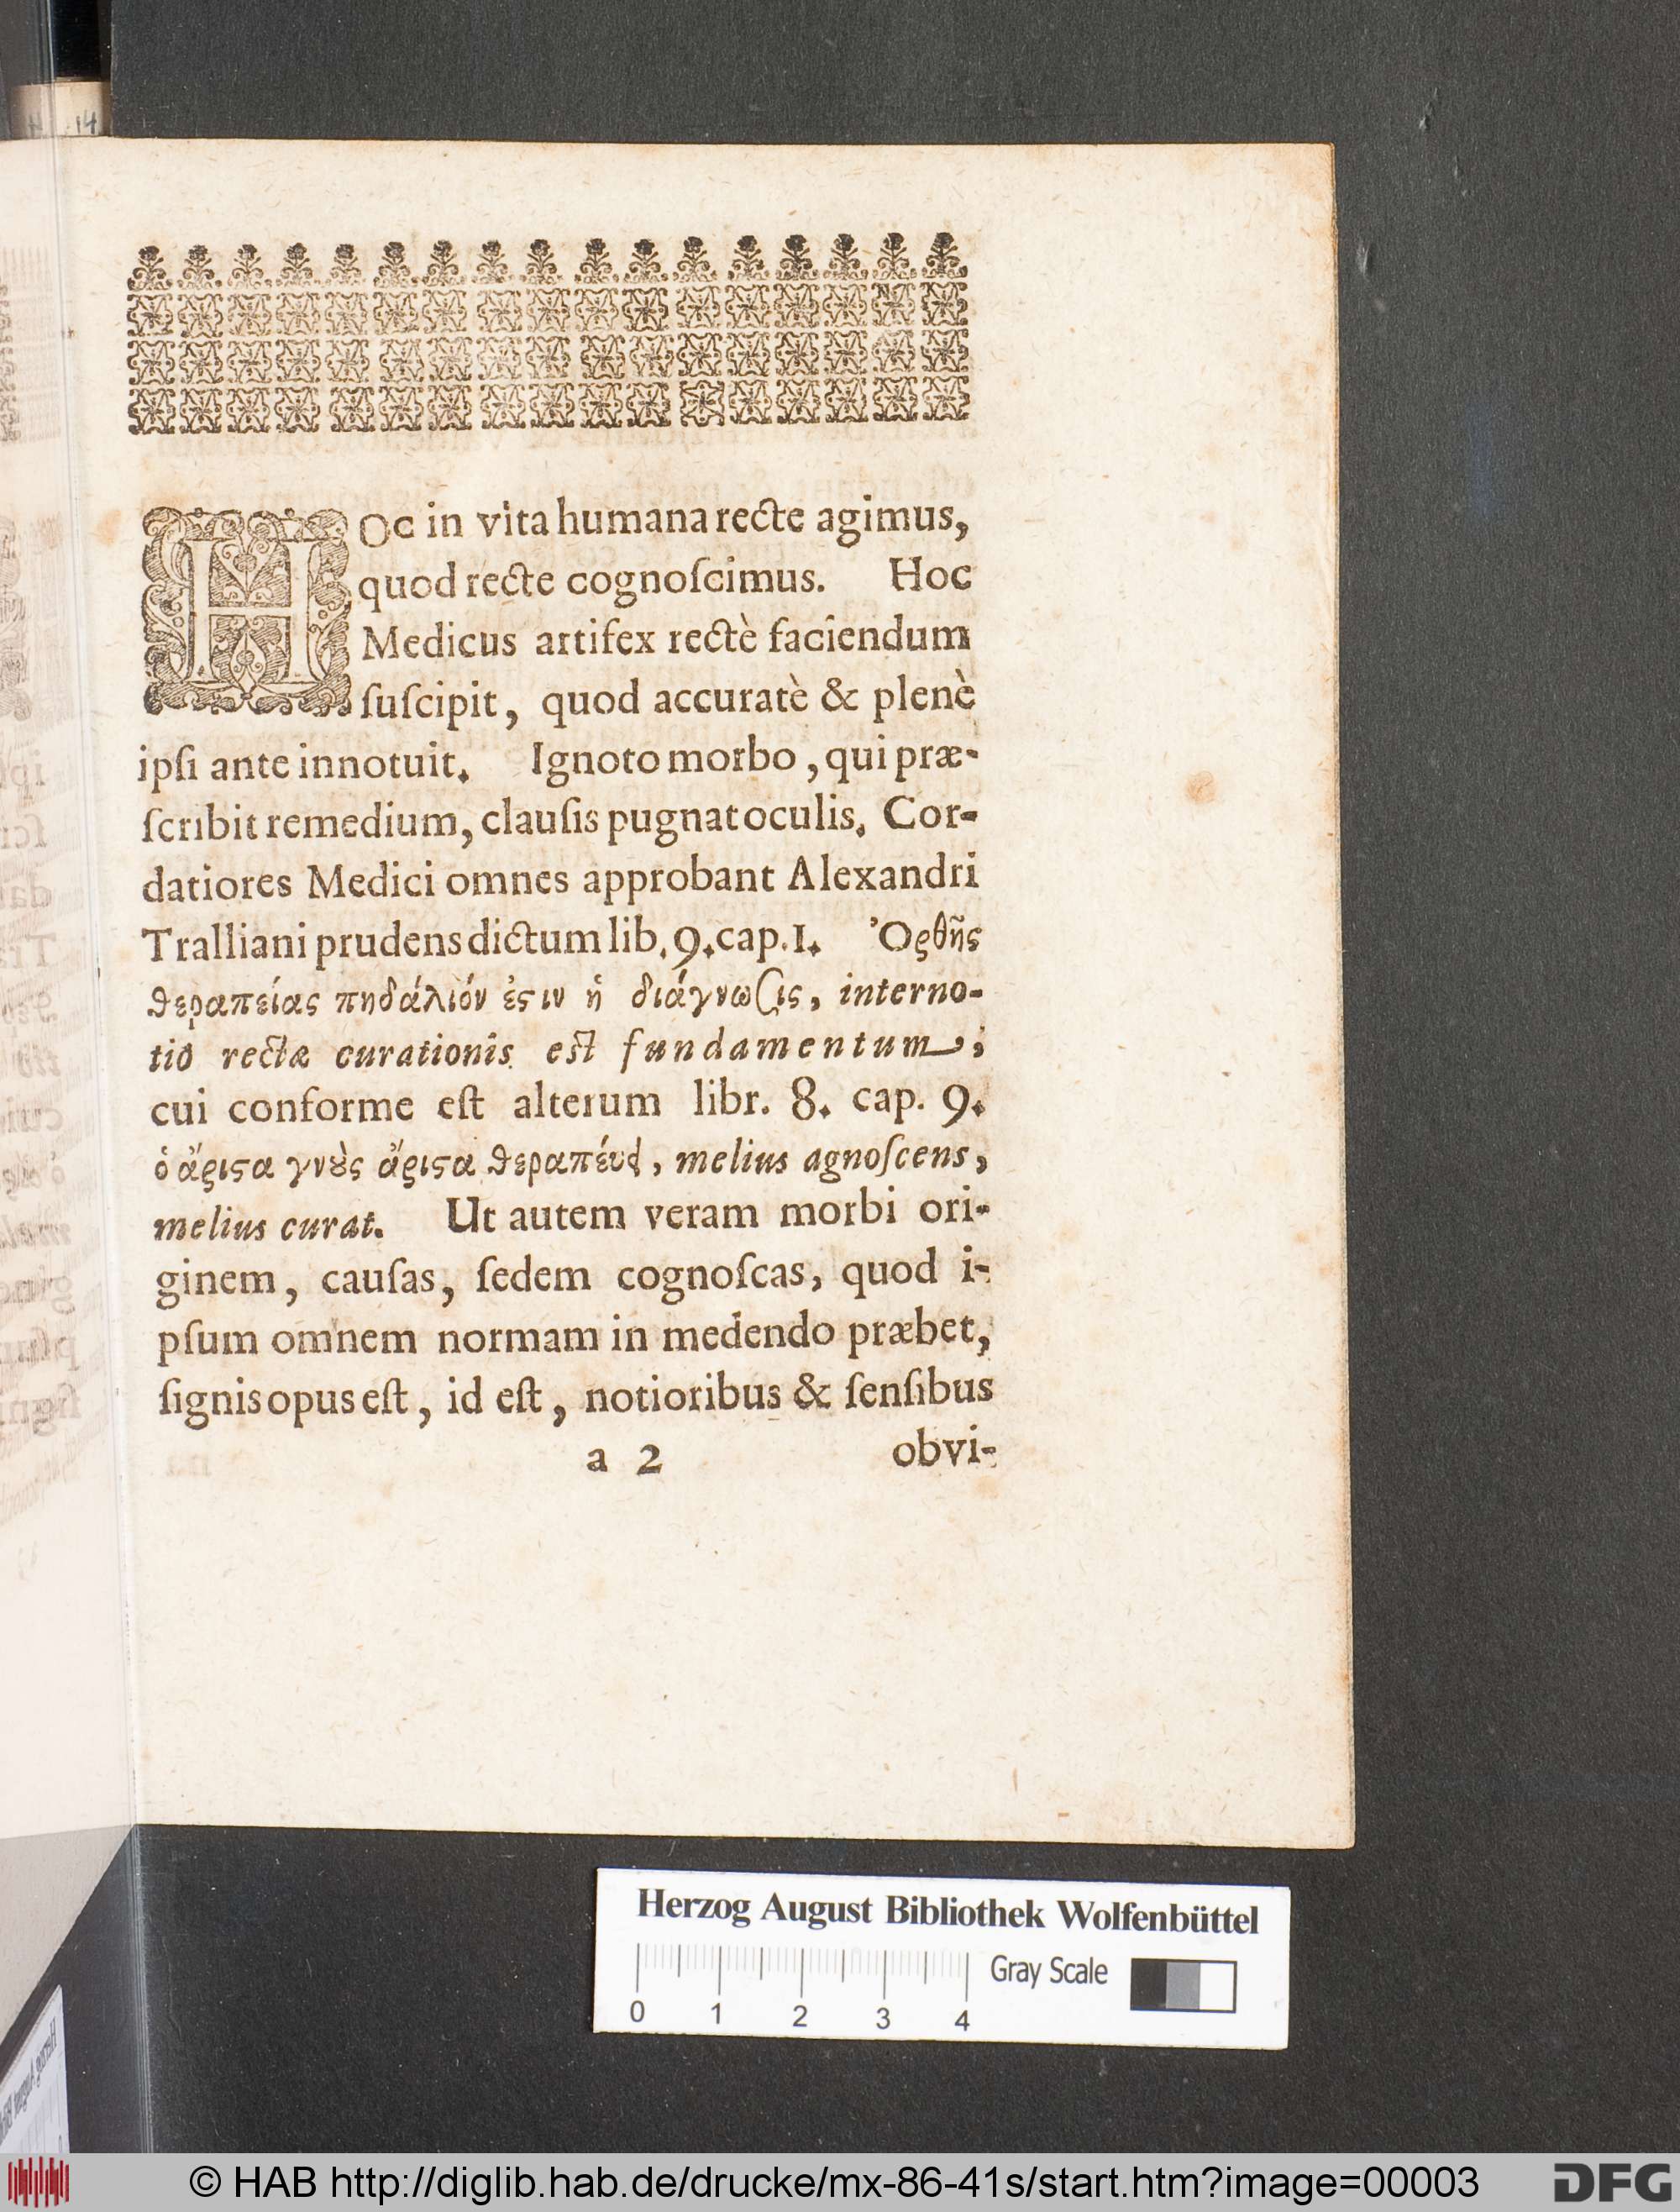 HOC in vita humana recte agimus,
quod recte cognoſcimus. Hoc
Medicus artifex rectè faciendum
ſuſcipit, quod accuratè & plenè
ipſi ante innotuit. Ignoto morbo, qui præ-
ſcribit remedium, clauſis pugnat oculis. Cor-
datiores Medici omnes approbant Alexandri
Tralliani prudens dictum lib. 9. cap. 1. Ὀρθῆς
θεραπείας πηδάλιόν ἐϛιν ἡ διάγνωσις, interno-
tio rectæ curationis est fundamentum;
cui conforme eſt alterum libr. 8. cap. 9.
ὁ ἄριϛα γνοὺς ἄριϛα θεραπέυει, melius agnoſcens,
melius curat. Ut autem veram morbi ori-
ginem, cauſas, ſedem cognoſcas, quod i-
pſum omnem normam in medendo præbet,
ſignis opus eſt, id eſt, notioribus & ſenſibus
a 2 obvi-
Herzog August Bibliothek Wolfenbüttel
Gray Scale
0 1 2 3 4
© HAB http://diglib.hab.de/drucke/mx-86-41s/start.htm?image=00003
DFG